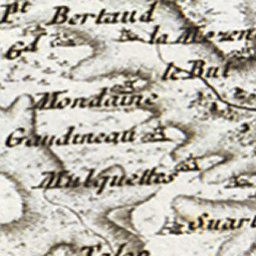 Pt Bertaud
Gd
la Mezen
le Buf
Mondaine
Gaudineau
Mulquettes
Suart